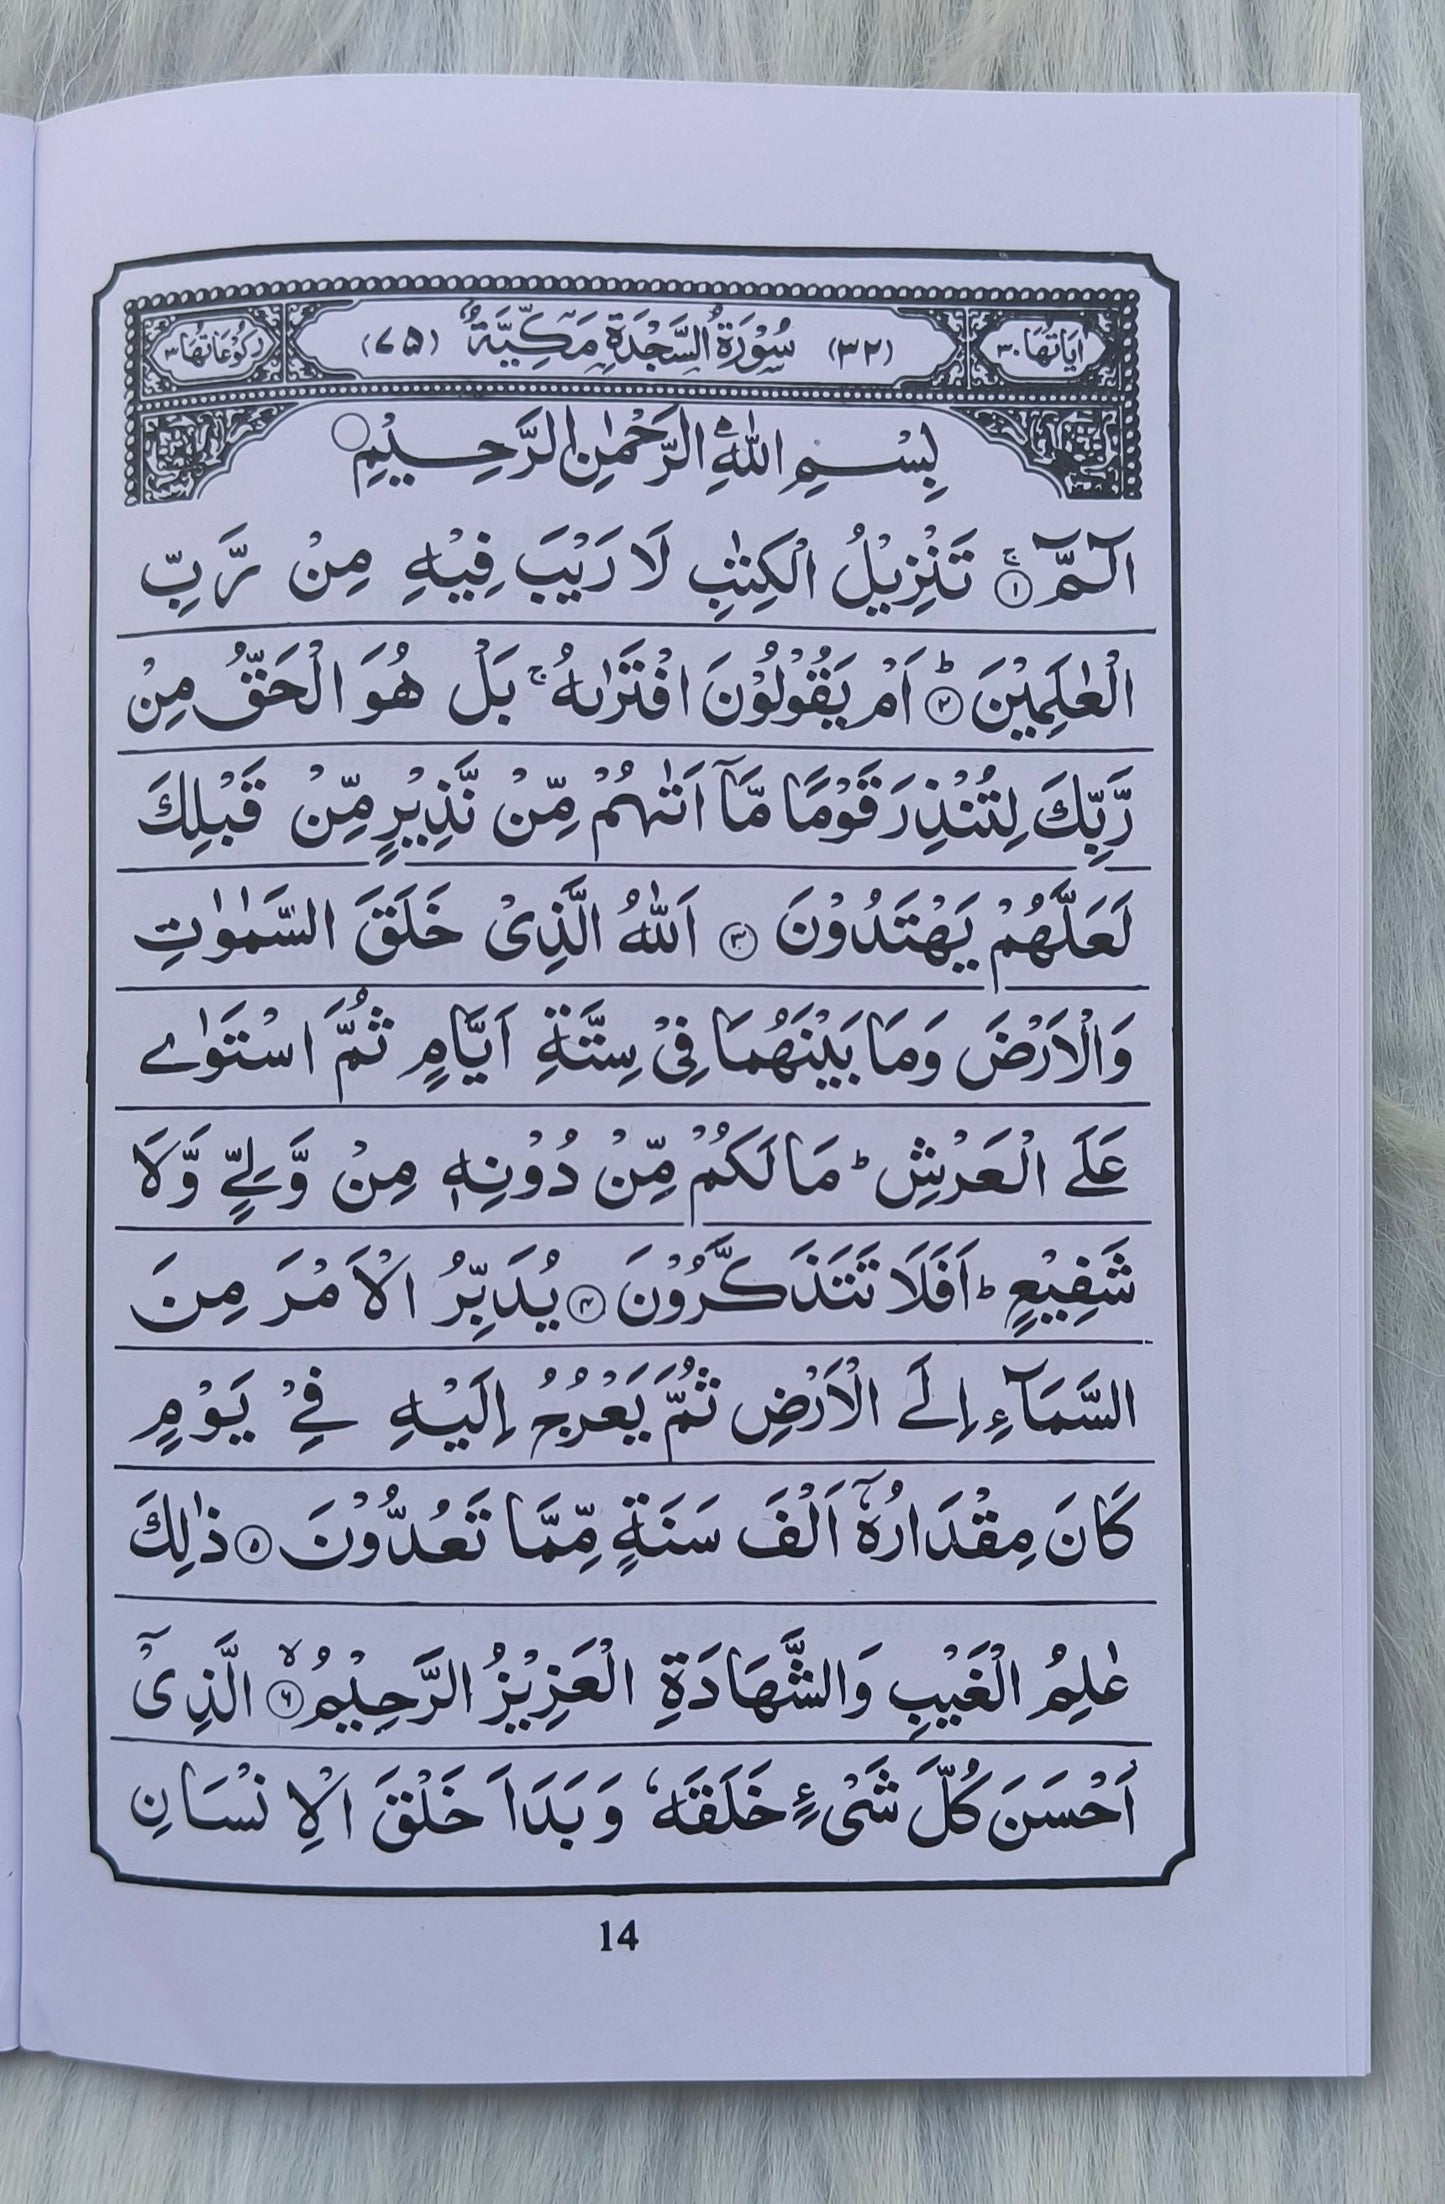 اٰيَاتُهَا ٣٠ (٣٢) سُوْرَةُ السَّجْدَةِ مَكِّيَّةٌ (٧٥) رُكُوْعَاتُهَا ٣
بِسْمِ اللّٰهِ الرَّحْمٰنِ الرَّحِيْمِ
الٓمّٓ ۚ‏ ﴿١﴾ تَنْزِيْلُ الْكِتٰبِ لَا رَيْبَ فِيْهِ مِنْ رَّبِّ
الْعٰلَمِيْنَ ؕ ﴿٢﴾ اَمْ يَقُوْلُوْنَ افْتَرٰىهُ ۚ بَلْ هُوَ الْحَقُّ مِنْ
رَّبِّكَ لِتُنْذِرَ قَوْمًا مَّاۤ اَتٰىهُمْ مِّنْ نَّذِيْرٍ مِّنْ قَبْلِكَ
لَعَلَّهُمْ يَهْتَدُوْنَ ﴿٣﴾ اَللّٰهُ الَّذِىْ خَلَقَ السَّمٰوٰتِ
وَالْاَرْضَ وَمَا بَيْنَهُمَا فِىْ سِتَّةِ اَيَّامٍ ثُمَّ اسْتَوٰے
عَلَے الْعَرْشِ ؕ مَا لَكُمْ مِّنْ دُوْنِهٖ مِنْ وَّلِىٍّ وَّلَا
شَفِيْعٍ ؕ اَفَلَا تَتَذَكَّرُوْنَ ﴿٤﴾ يُدَبِّرُ الْاَمْرَ مِنَ
السَّمَآءِ اِلَے الْاَرْضِ ثُمَّ يَعْرُجُ اِلَيْهِ فِىْ يَوْمٍ
كَانَ مِقْدَارُهٗۤ اَلْفَ سَنَةٍ مِّمَّا تَعُدُّوْنَ ﴿٥﴾ ذٰلِكَ
عٰلِمُ الْغَيْبِ وَالشَّهَادَةِ الْعَزِيْزُ الرَّحِيْمُ ۙ ﴿٦﴾ الَّذِىْۤ
اَحْسَنَ كُلَّ شَىْءٍ خَلَقَهٗ وَبَدَاَ خَلْقَ الْاِنْسَانِ
14